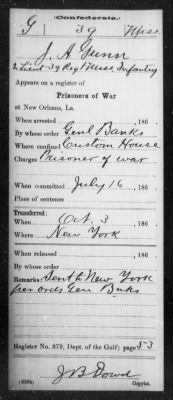 (Confederate.)
G 39 Miss.
J. A. Gunn
2 Lieut 39 Reg't Miss. Infantry
Appears on a register of
Prisoners of War
at New Orleans, La.
When arrested , 186 .
By whose order Genl Banks
Where confined Custom House
Charges Prisoner of war
When committed July 16 , 186 .
Place of sentence
Transferred:
When Oct. 3 , 186 .
Where New York
When released , 186 .
By whose order
Remarks: Sent to New York
per ords Gen Bnks
Register No. 879, Dept. of the Gulf; page 53
J B Dowd
Copyist.